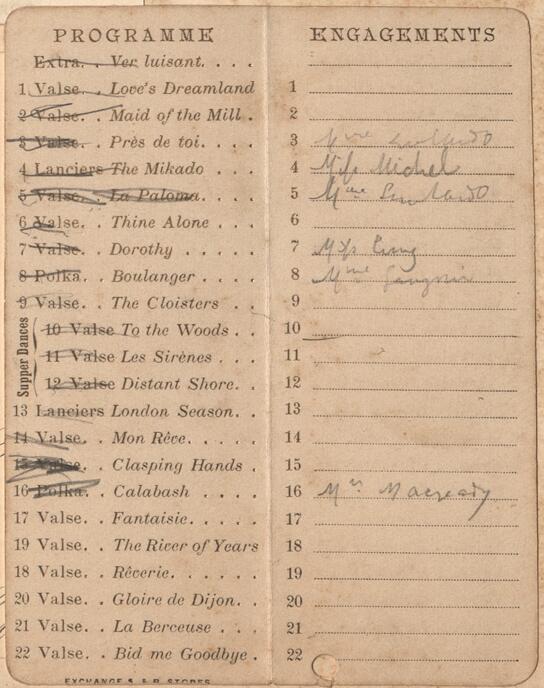 PROGRAMME
Extra. . Ver luisant. . . .
1 Valse. . Love's Dreamland
2 Valse. . Maid of the Mill .
3 Valse. . Près de toi. . . .
4 Lanciers The Mikado . . .
5 Valse. . La Paloma. . . .
6 Valse. . Thine Alone . . .
7 Valse. . Dorothy . . . . .
8 Polka. . Boulanger . . . .
9 Valse. . The Cloisters . . .
Supper Dances
10 Valse To the Woods . .
11 Valse Les Sirènes . . .
12 Valse Distant Shore. . .
13 Lanciers London Season. . .
14 Valse. . Mon Rêve. . . . .
15 Valse. . Clasping Hands .
16 Polka. . Calabash . . . .
17 Valse. . Fantaisie. . . . .
19 Valse. . The River of Years
18 Valse. . Rêverie. . . . . .
20 Valse. . Gloire de Dijon. . .
21 Valse. . La Berceuse . . .
22 Valse. . Bid me Goodbye .
EXCHANGE S & P STORES
ENGAGEMENTS
1
2
3 Mme
4 Miss Michel
5 Mme
6
7 Miss
8 Mme
9
10
11
12
13
14
15
16 Mrs Macready
17
18
19
20
21
22